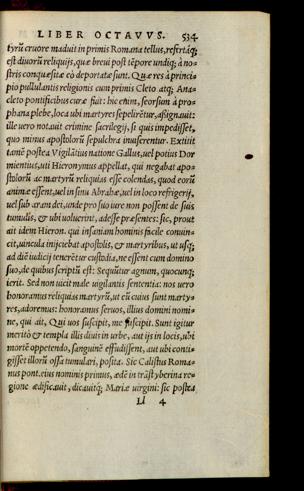 LIBER OCTAVVS. 534
tyrũ cruore maduit in primis Romana tellus, refertáq;
est diuorũ reliquijs, quæ breui post tẽpore undiq; à no-
stris conquæsitæ eò deportatæ sunt. Quæ res à princi-
pio pullulantis religionis cum primis Cleto atq; Ana-
cleto pontificibus curæ fuit: hic enim, seorsum à pro-
phana plebe, loca ubi martyres sepelirẽtur, aßignauit:
ille uero notauit crimine sacrilegij, si quis impedisset,
quo minus apostolorũ sepulchra inuiserentur. Extitit
tamẽ postea Vigilãtius natione Gallus, uel potius Dor
mientius, uti Hieronymus appellat, qui negabat apo-
stolorũ ac martyrũ reliquias esse colendas, quod eorũ
animæ essent, uel in sinu Abrahæ, uel in loco refrigerij,
uel sub aram dei, unde pro suo iure non possent de suis
tumulis, & ubi uoluerint, adesse præsentes: sic, prout
ait idem Hieron. qui insaniam hominis facile conuin-
cit, uincula inijciebat apostolis, & martyribus, ut usq;
ad diẽ iudicij tenerẽtur custodia, ne essent cum domino
suo, de quibus scriptũ est: Sequũtur agnum, quocunq;
ierit. Sed non uicit male uigilantis sententia: nos uero
honoramus reliquias martyrũ, ut eũ cuius sunt marty-
res, adoremus: honoramus seruos, illius domini nomi-
ne, qui ait, Qui uos suscipit, me suscipit. Sunt igitur
meritò & templa illis diuis in urbe, aut ijs in locis, ubi
mortẽ oppetendo, sanguinẽ effudissent, aut ubi conti-
gisset illorũ ossa tumulari, posita. Sic Calistus Roma-
nus pont. eius nominis primus, ædẽ in trãstyberina re-
gione ædificauit, dicauitq; Mariæ uirgini: sic postea
Ll 4